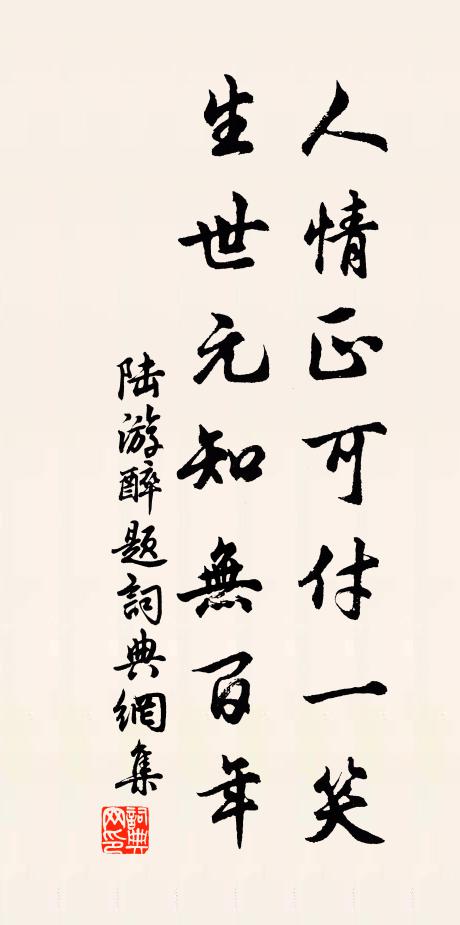 人情正可付一笑
生世元知無百年
陆游醉题詞典網集
詞典网印